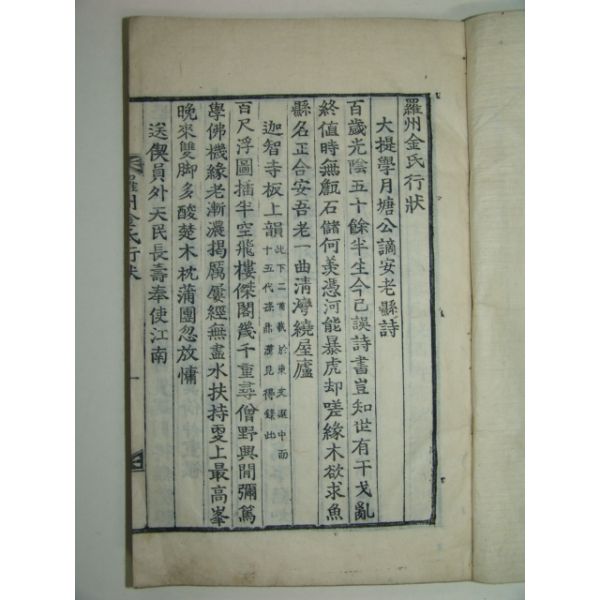 羅州金氏行狀
大提學月塘公謫安老縣詩
百歲光陰五十餘半生今已誤詩書豈知世有干戈亂
終值時無甔石儲何羨憑河能暴虎却嗟緣木欲求魚
縣名正合安吾老一曲清灣繞屋廬
迦智寺板上韻此下二首載於東文選中而
十五代孫鼎漢見得錄此
百尺浮圖揷半空飛樓傑閣幾千重尋僧野興閒彌篤
學佛機緣老漸濃揭厲屢經無盡水扶持更上最高峯
晩來雙脚多酸楚木枕蒲團忽放慵
送偰員外天民長壽奉使江南
羅州金氏行狀
一